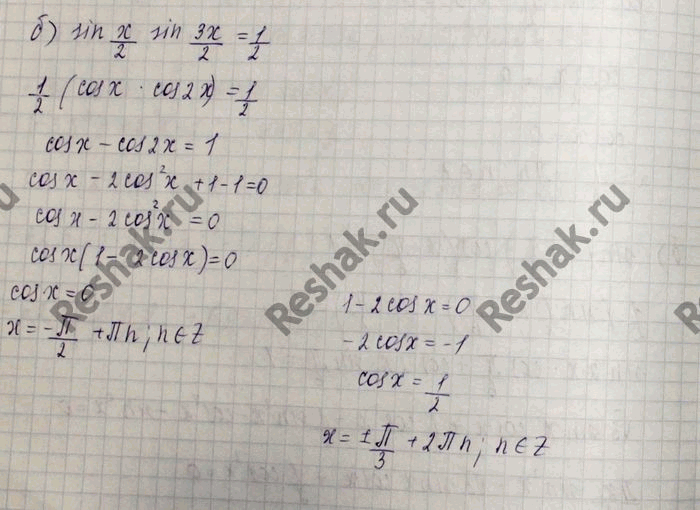 б) sin x/2 sin 3x/2 = 1/2
1/2 (cosx · cos2x) = 1/2
cosx - cos2x = 1
cosx - 2cos²x + 1 - 1 = 0
cosx - 2cos²x = 0
cosx(1 - 2cosx) = 0
cosx = 0
x = -π/2 + πn; n ∈ Z
1 - 2cosx = 0
-2cosx = -1
cosx = 1/2
x = ±π/3 + 2πn; n ∈ Z
Reshak.ru
Reshak.ru
Reshak.ru